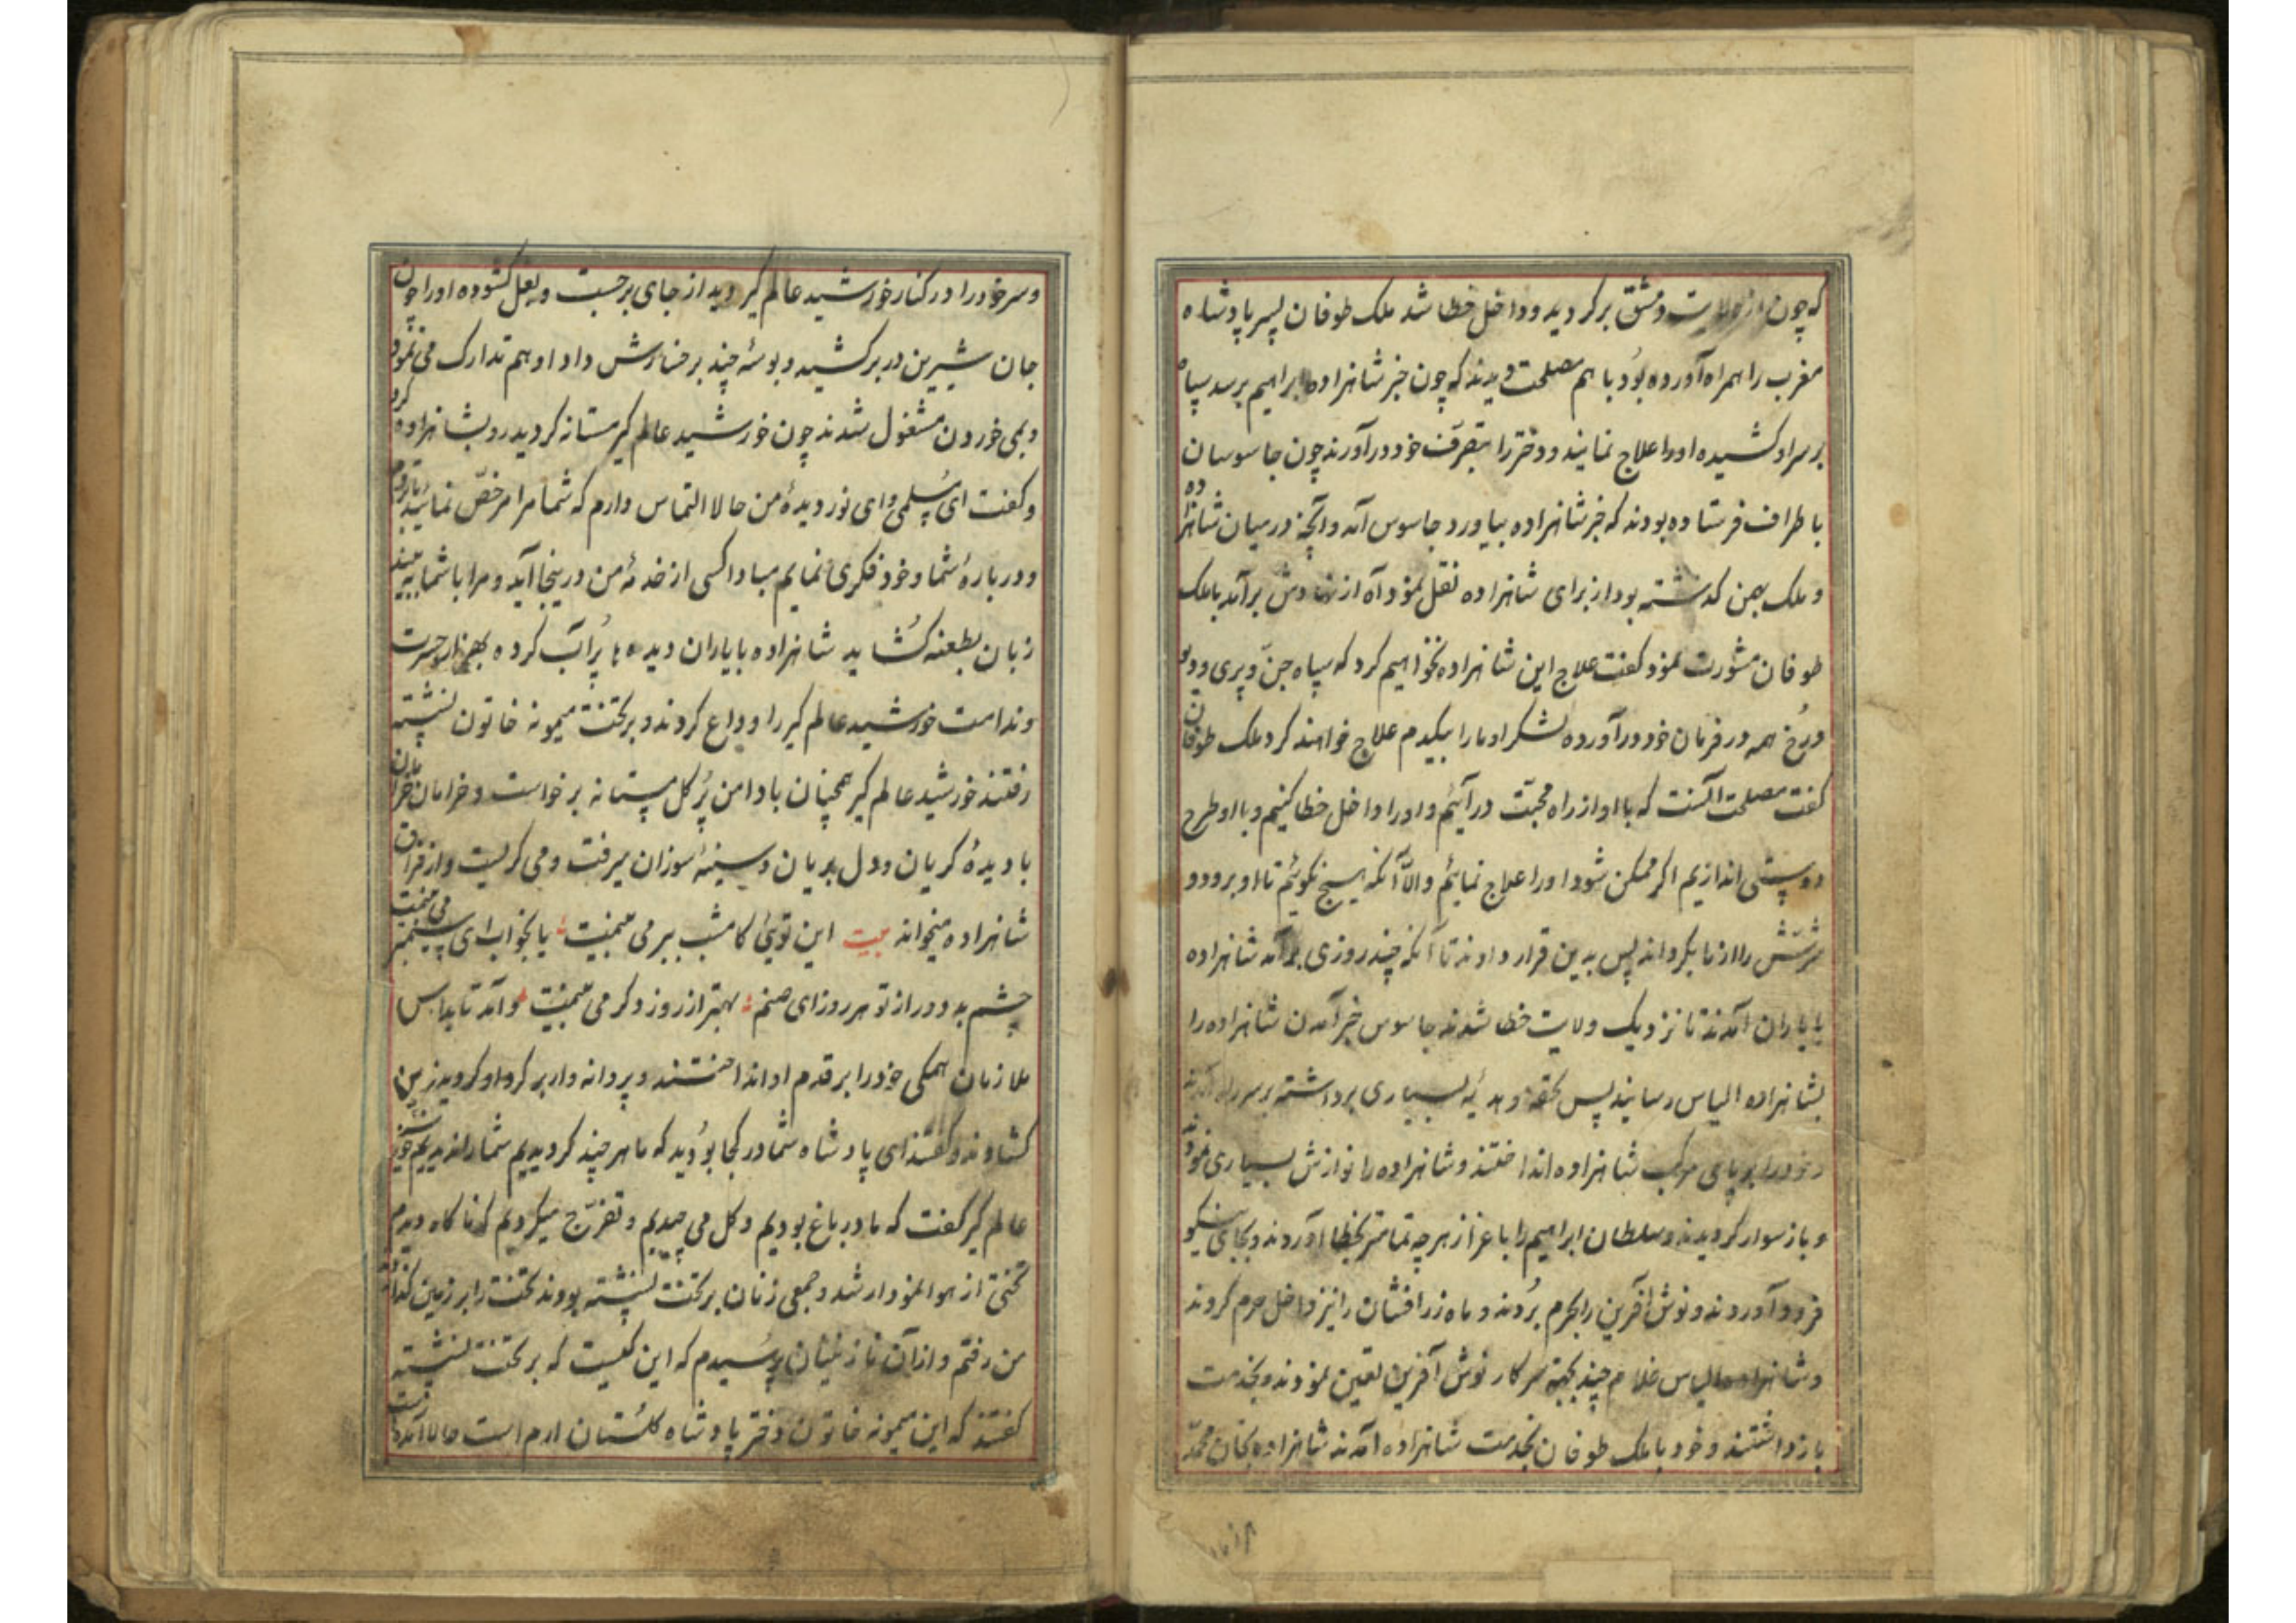 که چون از ولایت دمشق برگردید و داخل خطا شد ملک طوفان پسر پادشاه
مغرب را همراه آورده بود با هم مصلحت دیدند که چون خبر شاهزاده ابراهیم برسد سپاه
بر سر او کشیده او را علاج نمایند و دختر را بتصرف خود درآورند چون جاسوسان
باطراف فرستاده بودند که خبر شاهزاده بیاورد جاسوس آمد و آنچه در میان شاهزاده
و ملک بهمن گذشته بود از برای شاهزاده نقل نمود آه از نهادش برآمد با ملک
طوفان مشورت نمود گفت علاج این شاهزاده نخواهیم کرد که سپاه جن و پری و دیو
در خ همه در فرمان خود درآورده لشکر او ما را بیکدم علاج خواهند کرد ملک طوفان
گفت مصلحت آنست که با او از راه محبت درآئیم و او را داخل خطا کنیم و با او طرح
دوستی اندازیم اگر ممکن شود او را علاج نمائیم والا آنکه هیچ نگوئیم تا او برود و
شرش را از ما بگرداند پس بدین قرار دادند تا آنکه چند روزی برآمد شاهزاده
با یاران آمدند تا نزدیک ولایت خطا شدند جاسوس خبر آمدن شاهزاده را
بشاهزاده الیاس رسانید پس تحفه و هدیهٔ بسیاری برداشته بر سر راه آمدند
و خود را بر پای مرکب شاهزاده انداختند و شاهزاده را نوازش بسیاری نمودند
و باز سوار گردیدند و سلطان ابراهیم را با عزاز هر چه تمامتر بخطا آوردند و بجای نیکو
فرود آوردند و نوش آفرین را بحرم بردند و ماه زرافشان را نیز داخل حرم کردند
و شاهزاده الیاس غلام چند بجهة سرکار نوش آفرین تعین نمودند و بخدمت
بازداشتند و خود با ملک طوفان بخدمت شاهزاده آمدند شاهزاده بخان محمد
و سر خود را در کنار خورشید عالم گیر دید از جای برجست و بغل گشوده او را چون
جان شیرین در بر کشید و بوسهٔ چند بر رخسارش داد او هم تدارک می نمود
و بمی خوردن مشغول شدند چون خورشید عالم گیر مستانه گردید رو بشاهزاده کرد
و گفت ای پسلمی و ای نور دیدهٔ من حالا التماس دارم که شما مرا مرخص نمائید تا بروم
و در بارهٔ شما و خود فکری نمایم مبادا کسی از خدمهٔ من در اینجا آید و مرا با شما به بیند
زبان بطعنه گشاید شاهزاده با یاران دیده ها پر آب کرده بهزار حسرت
و ندامت خورشید عالم گیر را وداع کردند و بر تخت میمونه خاتون نشسته
رفتند خورشید عالم گیر همچنان با دامن پر گل مستانه برخاست و خرامان خرامان
با دیدهٔ گریان و دل بریان و سینهٔ سوزان میرفت و می گریست و از فراق
شاهزاده میخواند بیت این توئی کامشب ببر می بینمت یا بخواب ای سیمبر می بینمت
چشم بد دور از تو هر روز ای صنم بهتر از روز دگر می بینمت و آمد تا بداس
ملازمان همگی خود را بر قدم او انداختند و پروانه وار بر گرد او گردیدند زمین
گشادند و گفتند ای پادشاه شما در کجا بودید که ما هر چند گردیدیم شما را ندیدیم خورشید
عالم گیر گفت که ما در باغ بودیم و گل می چیدیم و تفرج میکردیم که ناگاه دیدم
تختی از هوا نمودار شد و جمعی زنان بر تخت نشسته بودند تخت را بر زمین گذاشتند
من رفتم و از آن نازنینان پرسیدم که این کیست که بر تخت نشسته
گفتند که این میمونه خاتون دختر پادشاه گلستان ارم است حالا آمده است